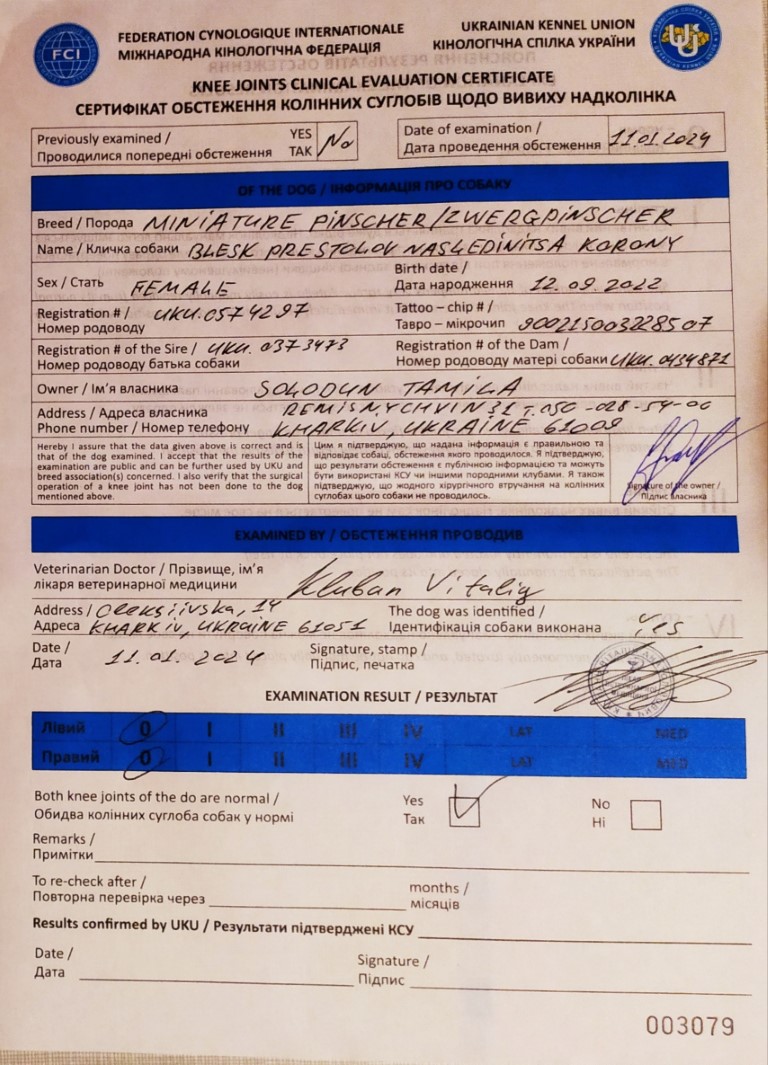 FCI
FEDERATION CYNOLOGIQUE INTERNATIONALE
МІЖНАРОДНА КІНОЛОГІЧНА ФЕДЕРАЦІЯ
UKRAINIAN KENNEL UNION
КІНОЛОГІЧНА СПІЛКА УКРАЇНИ
KNEE JOINTS CLINICAL EVALUATION CERTIFICATE
СЕРТИФІКАТ ОБСТЕЖЕННЯ КОЛІННИХ СУГЛОБІВ ЩОДО ВИВИХУ НАДКОЛІНКА
Previously examined / YES
Проводилися попередні обстеження ТАК No
Date of examination /
Дата проведення обстеження 11.01.2024
OF THE DOG / ІНФОРМАЦІЯ ПРО СОБАКУ
Breed / Порода MINIATURE PINSCHER/ZWERGPINSCHER
Name / Кличка собаки BLESK PRESTOLOV NASLEDINITSA KORONY
Sex / Стать FEMALE
Birth date /
Дата народження 12.09.2022
Registration # / UKU.0574297
Номер родоводу
Tattoo – chip # /
Тавро – мікрочип 900215003228507
Registration # of the Sire / UKU.0373473
Номер родоводу батька собаки
Registration # of the Dam /
Номер родоводу матері собаки UKU.0434871
Owner / Ім’я власника SOLODUN TAMILA
Address / Адреса власника 
Phone number / Номер телефону KHARKIV, UKRAINE 61009
Hereby I assure that the data given above is correct and is
that of the dog examined. I accept that the results of the
examination are public and can further used by UKU and
breed association(s) concerned. I also verify that the surgical
operation of a knee joint has not been done to the dog
mentioned above.
Цим я підтверджую, що надана інформація є правильною та
відповідає собаці, обстеження якого проводилося. Я підтверджую,
що результати обстеження є публічною інформацією та можуть
бути використані КСУ чи іншими породними клубами. Я також
підтверджую, що жодного хірургічного втручання на колінних
суглобах цього собаки не проводилось.
Signature of the owner /
Підпис власника
EXAMINED BY / ОБСТЕЖЕННЯ ПРОВОДИВ
Veterinarian Doctor / Прізвище, ім’я
лікаря ветеринарної медицини Kluban Vitaliy
Address / Oleksiivska, 14
Адреса KHARKIV, UKRAINE 61051
The dog was identified /
Ідентифікація собаки виконана Yes
Date /
Дата 11.01.2024
Signature, stamp /
Підпис, печатка
EXAMINATION RESULT / РЕЗУЛЬТАТ
Лівий 0 I II III IV LAT MED
Правий 0 I II III IV LAT MED
Both knee joints of the do are normal /
Обидва колінних суглоба собак у нормі
Yes
Так
No
Ні
Remarks /
Примітки
To re-check after /
Повторна перевірка через
months /
місяців
Results confirmed by UKU / Результати підтверджені КСУ
Date /
Дата
Signature /
Підпис
003079